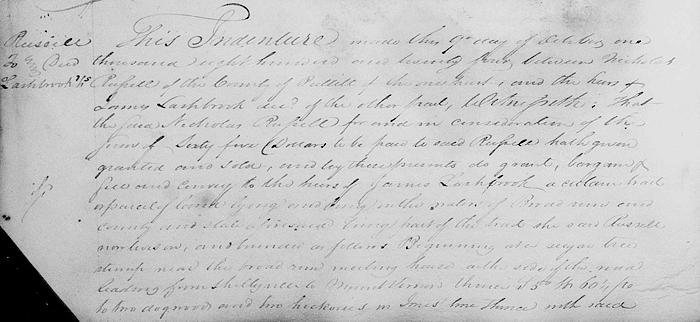 Russell
to Deed
Lashbrook
This Indenture made this 9th day of October one
thousand eight hundred and twenty four, between Nicholas
Russell of the County of of the one part, and the heirs of
James Lashbrook decd of the other part, Witnesseth: That
the said Nicholas Russell for and in consideration of the
sum of Sixty five Dollars to be paid to said Russell hath given
granted and sold, and by these presents do grant, bargain &
sell and convey to the heirs of James Lashbrook a certain tract
or parcel land lying and being on the waters of Broad run and
county and state aforesaid being part of the tract the said Russell
now lives on, and bounded as follows Beginning at a sugar tree
stump near the broad run meeting house at the side of the road
leading from to thence
to two dogwoods and two hickories in Jones' line thence with said